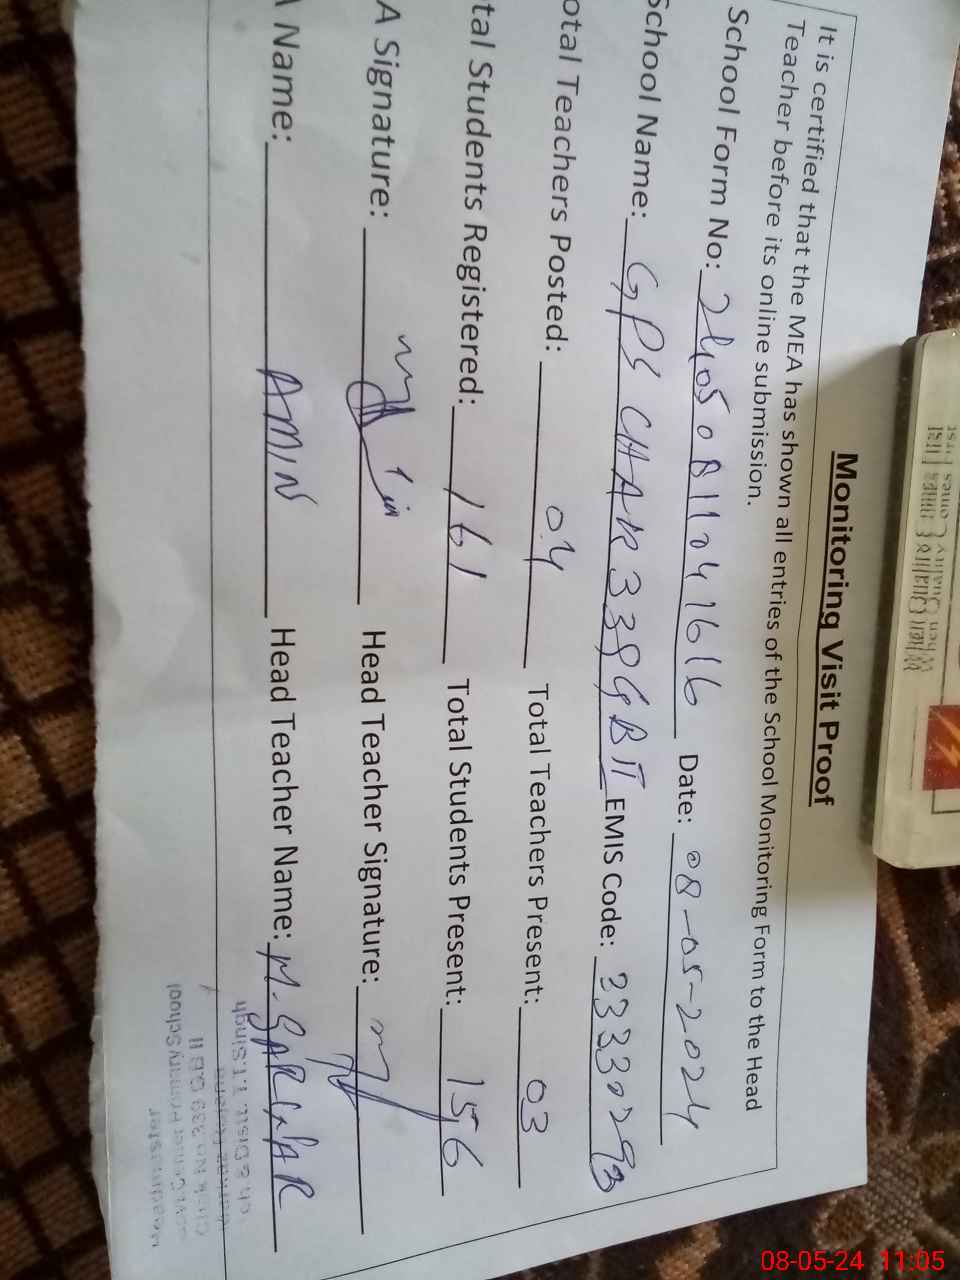 Monitoring Visit Proof
It is certified that the MEA has shown all entries of the School Monitoring Form to the Head
Teacher before its online submission.
School Form No: 24050811041616 Date: 08-05-2024
School Name: GPS CHAK 339GB II EMIS Code: 33330293
otal Teachers Posted: 04 Total Teachers Present: 03
tal Students Registered: 161 Total Students Present: 156
A Signature: Head Teacher Signature:
A Name: AMIN Head Teacher Name: M. SARWAR
Headmaster
Govt. Centre Primary School
Chak No. 339 GB II
ch & Distt: T.T.Singh
08-05-24 11:05